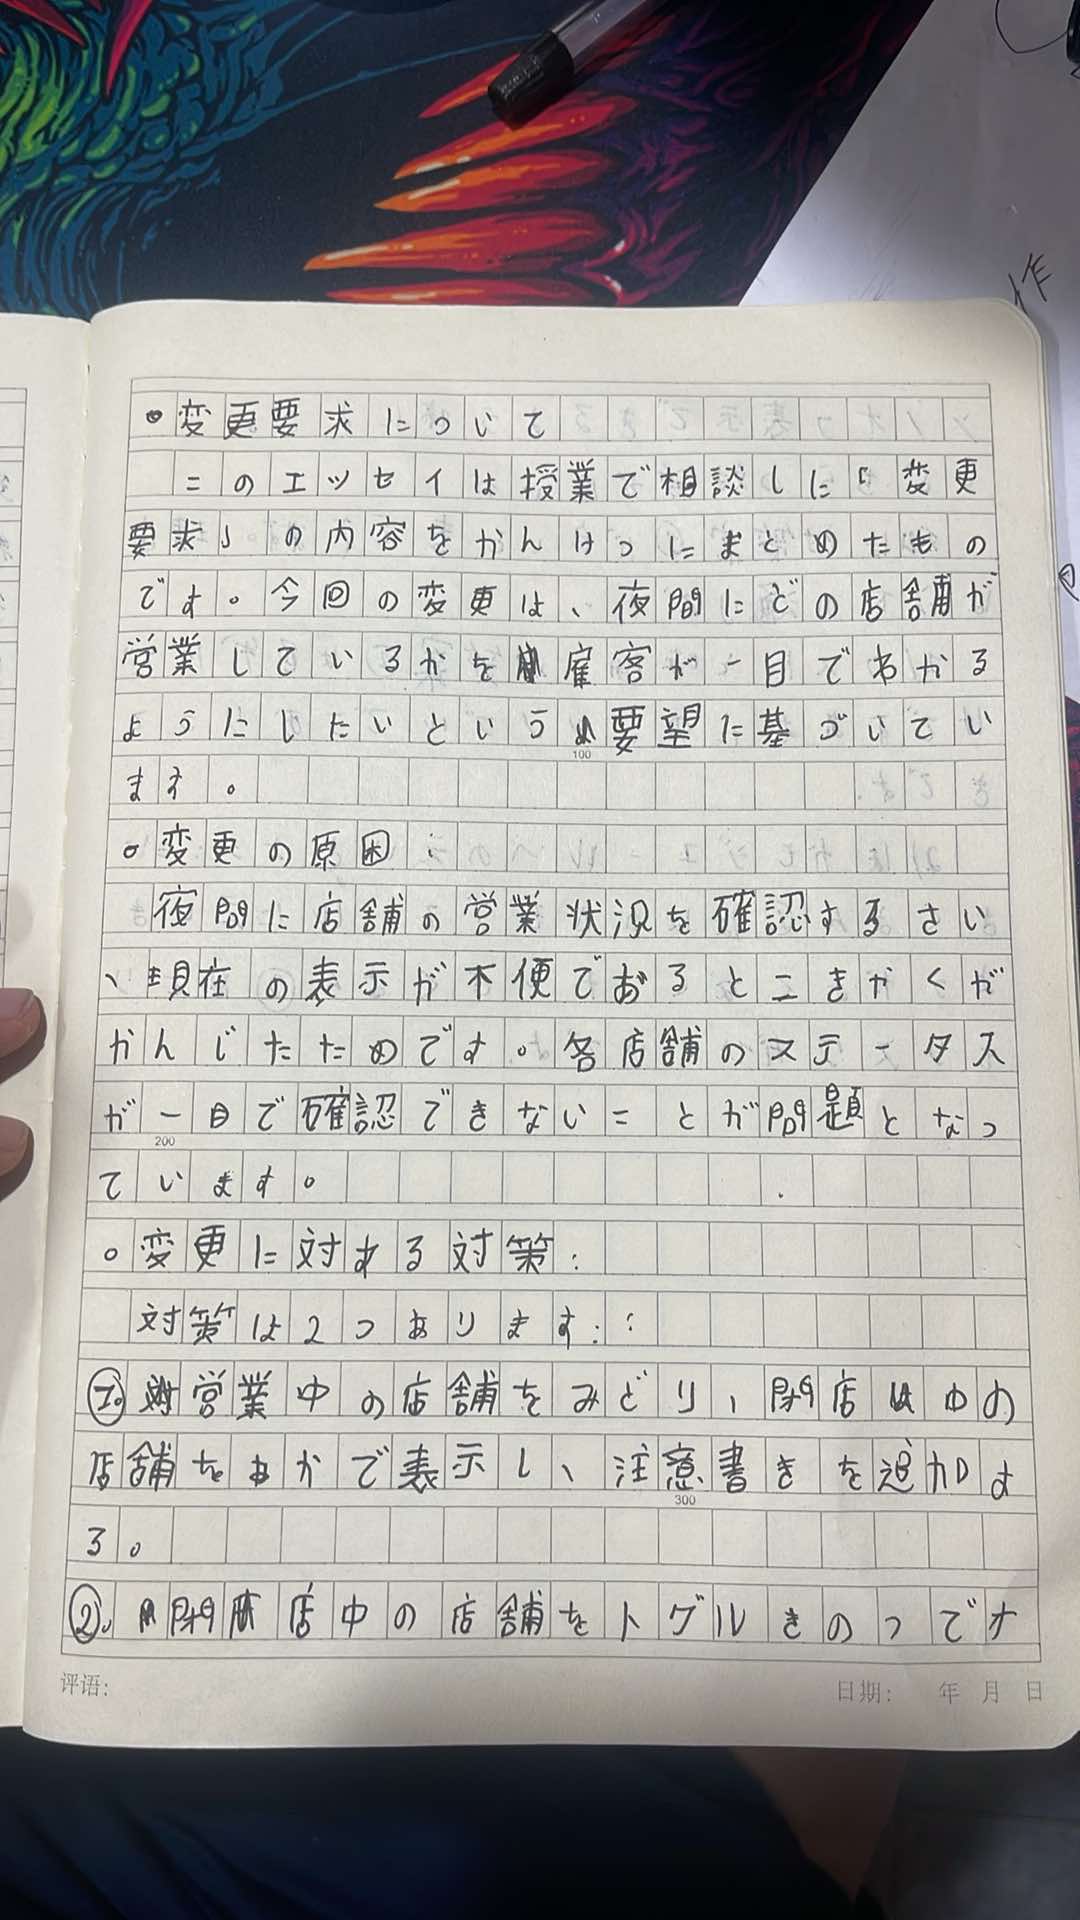 。変更要求について
このエッセイは授業で相談した「変更
要求」の内容をかんけつにまとめたもの
です。今回の変更は、夜間にどの店舗が
営業しているかを雇客が一目でわかる
ようにしたいという要望に基づいてい
ます。
。変更の原因:
夜間に店舗の営業状況を確認するさい
、現在の表示が不便でおるとこきゃくが
かんじたためです。各店舗のステータス
が一目で確認できないことが問題となっ
ています。
。変更に対する対策:
対策は2つあります::
①。営業中の店舗をみどり、閉店中の
店舗をあかで表示し、注意書きを追加す
る。
②。閉店中の店舗をトグルきのうでオ
评语: 日期: 年 月 日
100
200
300
作